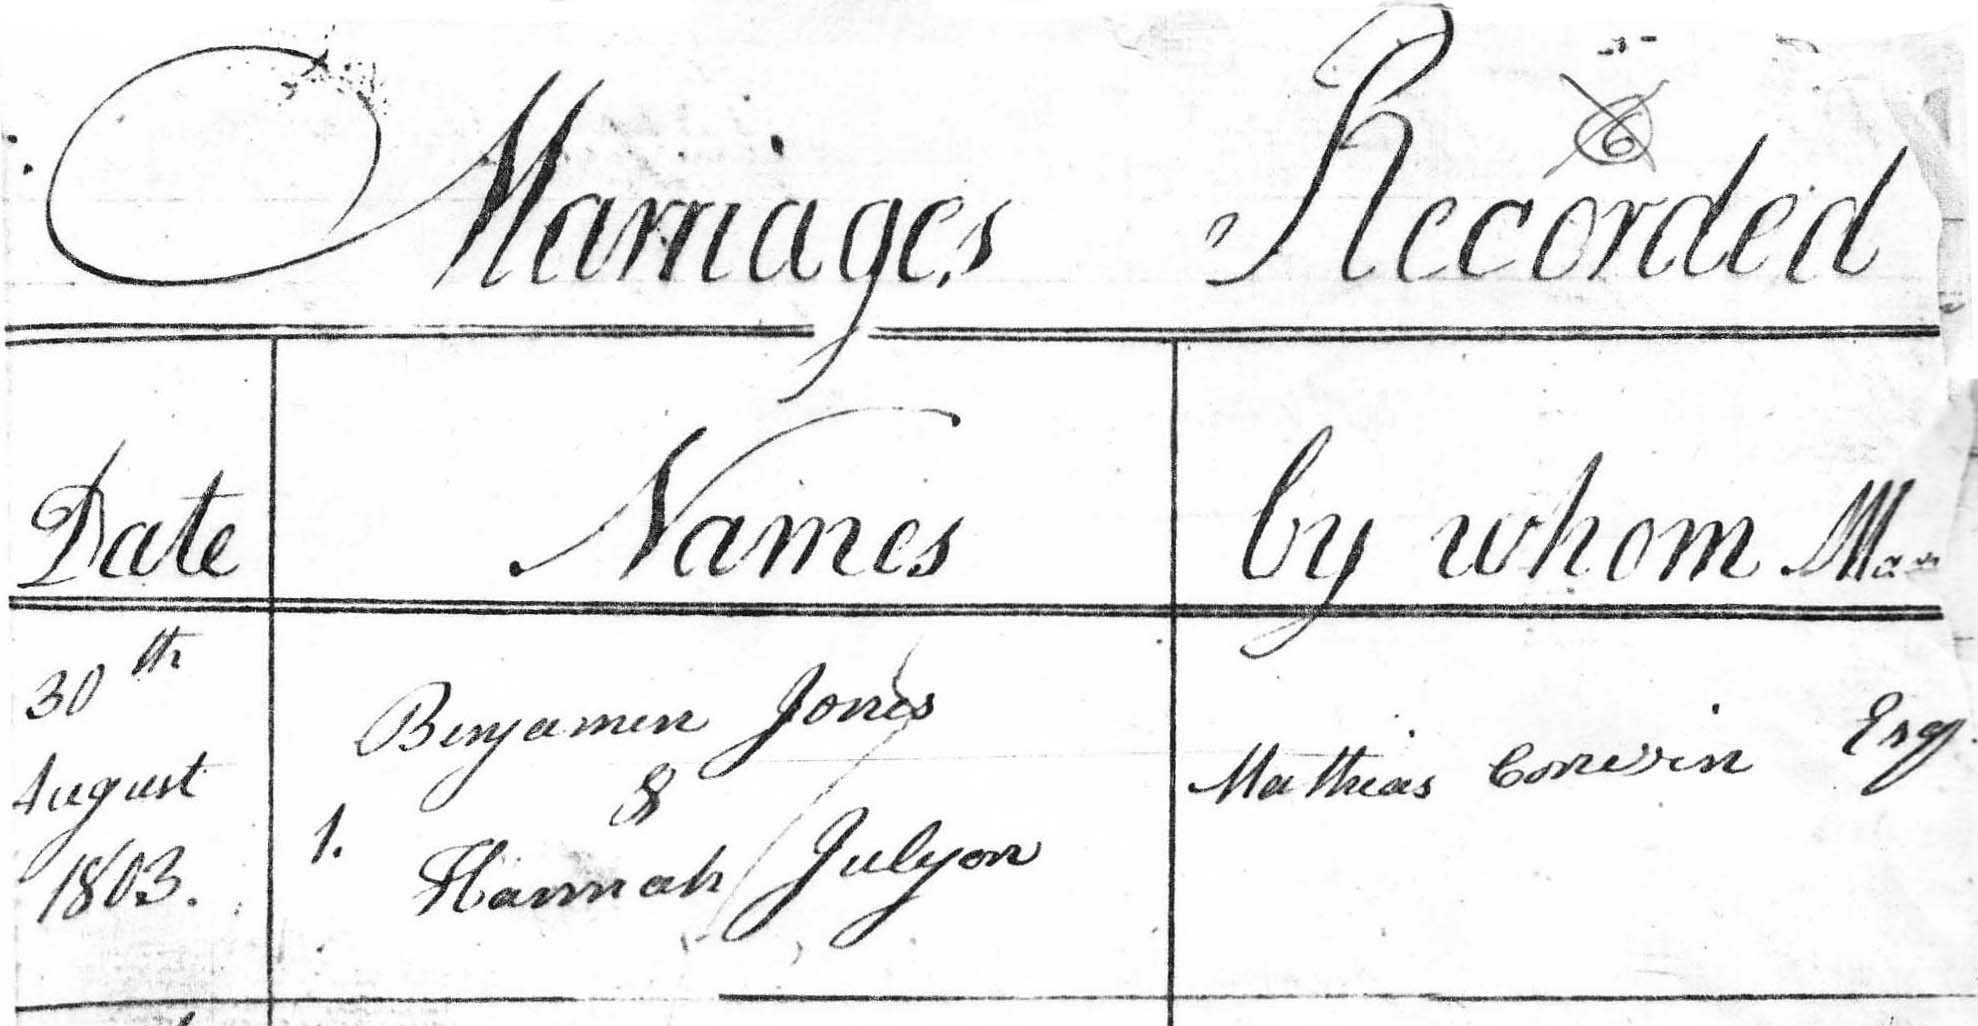 6
Marriages Recorded
Date Names by whom Mar
30th
August
1803.
1.
Benjamin Jones
&
Hannah Julyon
Mathias Corwin Esqr.